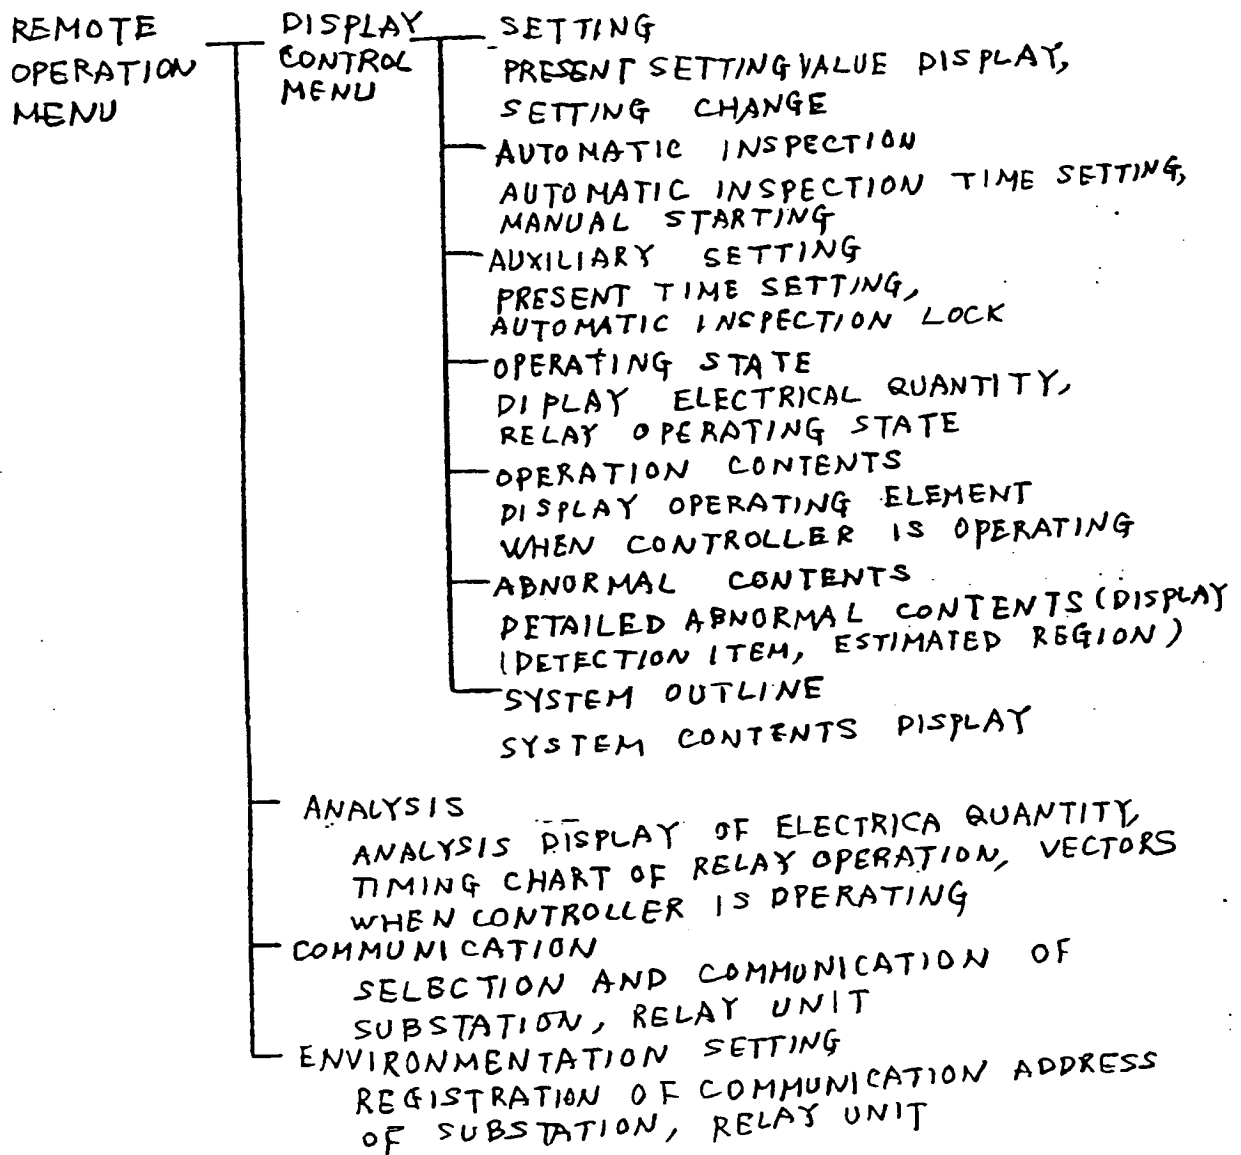 REMOTE
OPERATION
MENU
DISPLAY
CONTROL
MENU
SETTING
PRESENT SETTING VALUE DISPLAY,
SETTING CHANGE
AUTOMATIC INSPECTION
AUTOMATIC INSPECTION TIME SETTING,
MANUAL STARTING
AUXILIARY SETTING
PRESENT TIME SETTING,
AUTOMATIC INSPECTION LOCK
OPERATING STATE
DIPLAY ELECTRICAL QUANTITY,
RELAY OPERATING STATE
OPERATION CONTENTS
DISPLAY OPERATING ELEMENT
WHEN CONTROLLER IS OPERATING
ABNORMAL CONTENTS
DETAILED ABNORMAL CONTENTS (DISPLAY
(DETECTION ITEM, ESTIMATED REGION)
SYSTEM OUTLINE
SYSTEM CONTENTS DISPLAY
ANALYSIS
ANALYSIS DISPLAY OF ELECTRICA QUANTITY,
TIMING CHART OF RELAY OPERATION, VECTORS
WHEN CONTROLLER IS OPERATING
COMMUNICATION
SELECTION AND COMMUNICATION OF
SUBSTATION, RELAY UNIT
ENVIRONMENTATION SETTING
REGISTRATION OF COMMUNICATION ADDRESS
OF SUBSTATION, RELAY UNIT